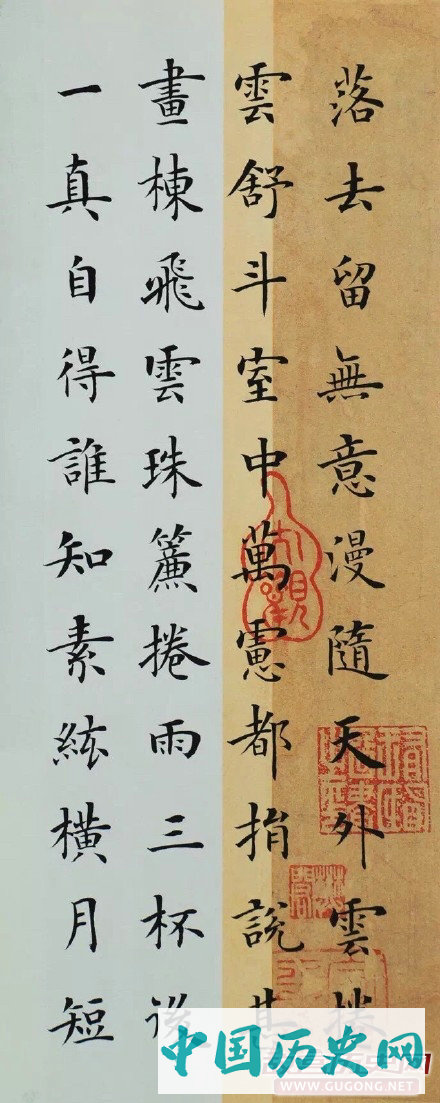 落去留無意漫隨天外雲
雲舒斗室中萬慮都捐說
畫棟飛雲珠簾捲雨三杯後
一真自得誰知素絃橫月短
中国历史网
WWW.GUGONG.NET